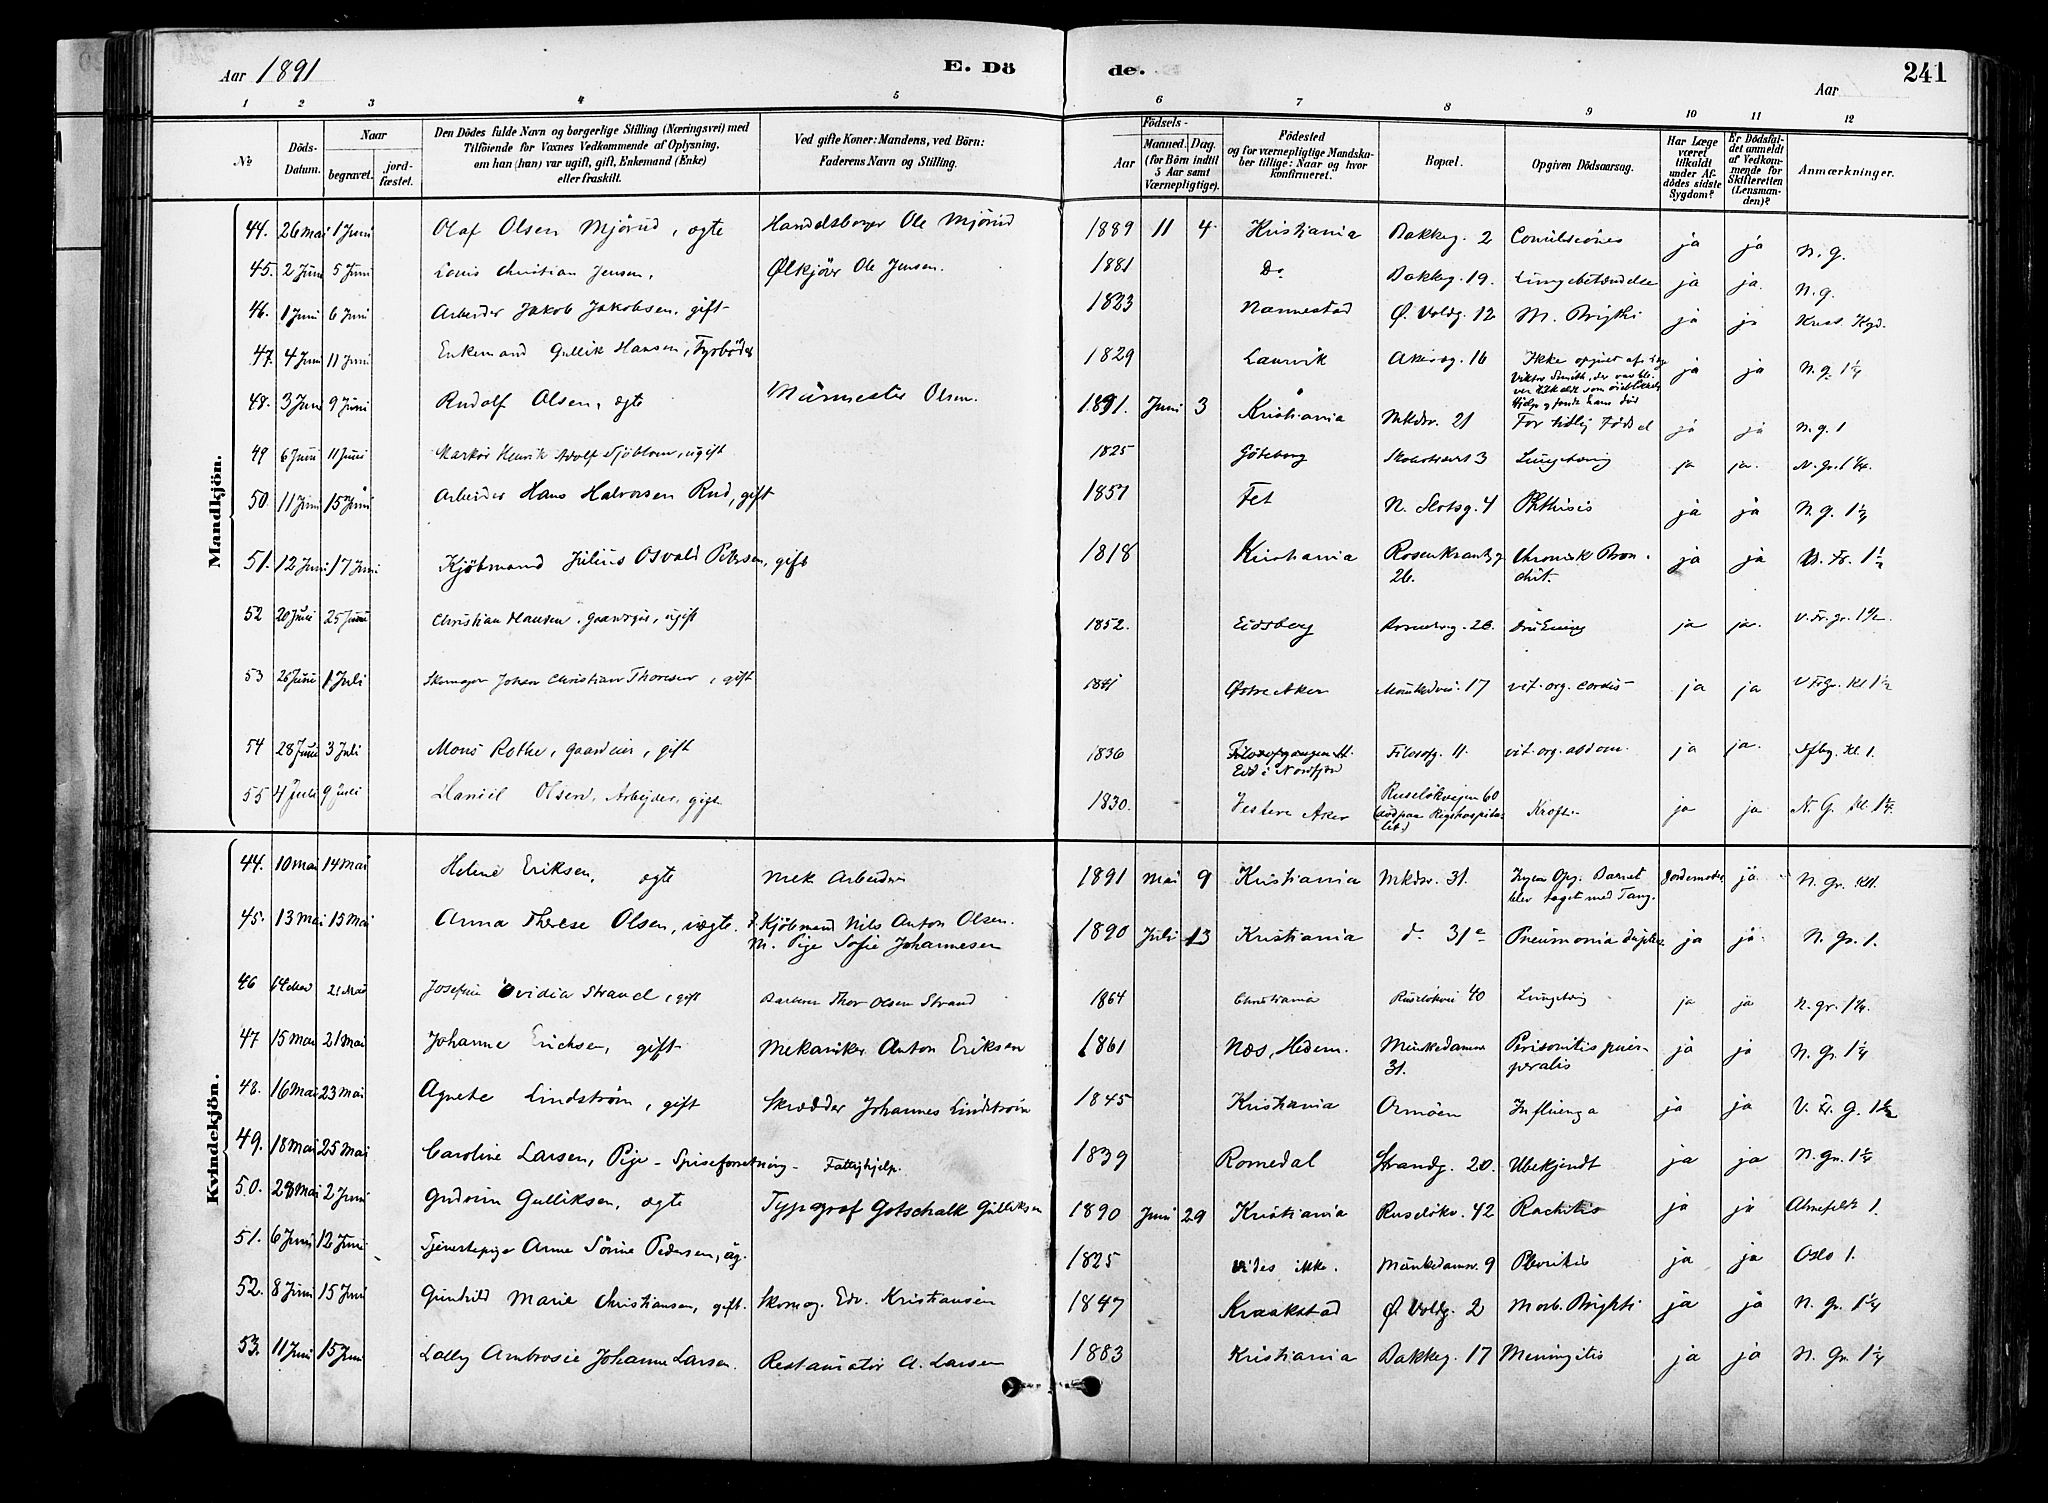 Aar 1891 E. Dö de. Aar 241
1 2 3 4 5 6 7 8 9 10 11 12
No Döds-Datum. Naar begravet. jordfæstet. Den Dödes fulde Navn og borgerlige Stilling (Næringsvei) med Tilföiende for Voxnes Vedkommende af Oplysning, om han (hun) var ugift, gift, Enkemand (Enke) eller fraskilt. Ved gifte Koner: Mandens, ved Börn: Faderens Navn og Stilling. Födsels- Aar Maaned. Dag. (for Börn indtil 5 Aar samt Værnepligtige). Födested og for værnepligtige Mandskaber tillige: Naar og hvor konfirmeret. Bopæl. Opgiven Dödsaarsag. Har Læge været tilkaldt under Afdödes sidste Sygdom? Er Dödsfaldet anmeldt af Vedkommende for Skifteretten (Lensmanden)? Anmærkninger.
Mandkjön.
44. 26 Mai 1 Juni Olaf Olsen Mjörud, ægte Handelsborger Ole Mjörud 1889 11 4 Kristiania Bakkeg. 2 Convulsiones ja ja N. g.
45. 2 Juni 5 Juni Louis Christian Jensen, Ølkjörer Ole Jensen. 1881 Do Bakkeg. 19. Lungebetændelse ja ja. N. g.
46. 1 Juni 6 Juni Arbeider Jakob Jakobsen, gift 1823 Nannestad Ø. Voldg. 12 M. Brigthi ja ja
47. 4 Juni 11 Juni Enkemand Gullik Hansen, Fyrböder 1829 Laurvik Akersg. 16 Ikke opgivet af Viktor Smith, der var blevet tilkaldt som Hjelp og fandt ham död ja ja N. g. 1 1/4
48. 3 Juni 9 Juni Rudolf Olsen, ægte Murmester Olsen. 1891. Juni 3 Kristiania Mkdsv. 21 For tidlig Födsel ja ja N. g. 1
49 6 Juni 11 Juni Markör Henrik Adolf Sjöblom, ugift 1825 Göteborg 3 Lungetæring ja ja. N. Gr. 1 1/4.
50. 11 Juni 15 Juni Arbeider Hans Halvorsen Rud, gift 1851 Fet N. Slotsg. 4 Phthisis ja ja N. G. 1 1/4
51. 12 Juni 17 Juni Kjöbmand Julius Osvald Petersen, gift 1818 Kristiania Rosenkrantzg 26. Chronisk Bronchit. ja ja V. Fr. 1 1/2
52 20 Juni 25 Juni Christian Hansen, Gaardgut, ugift 1852. Eidsberg Rosenkrg. 26. Drukning ja ja. V. Fr. gr. 1 1/2.
53 26 Juni 1 Juli Skomager Johan Christian Thoresen, gift 1841 Østre Aker Munkedsv. 17 vit. org. cordis ja ja V Fr Gr. Kl 1 1/2
54 28 Juni 3 Juli Mons Rothe, Gaardeier, gift 1836 Filosofgangen 11 Eid i Nordfjord Filosofg. 11. vit. org. abdom. ja ja. Kl. 1.
55 4 Juli 9 Juli Daniel Olsen, Arbejder, gift 1830. Vestere Aker Ruselökvejen 60 (död paa Rigshospitalet) Kræft ja ja N. G. Kl. 1 1/4.
Kvindekjön.
44. 10 Mai 14 Mai Helene Eriksen, ægte Mek Arbeider 1891 Mai 9 Kristiania Mkdsv. 31. Ingen Opg. Barnet blev taget med Tang. Jordemoder ja N. Gr. Kl 1.
45. 13 Mai 15 Mai Anna Therese Olsen, uægte. F. Kjöbmand Nils Anton Olsen. M. Pige Sofie Johannesen 1890 Juli 13 Kristiania d. 31 c Pneumonia duplex ja ja N. Gr. 1.
46 14 Mai 21 Mai Josefine Ovidia Strand, gift Barberer Thor Olsen Strand 1864 Christiania Ruselökvei 40 Lungetæring ja ja N. gr. 1 1/4.
47 15 Mai 21 Mai Johanne Erichsen, gift Mekaniker Anton Eriksen 1861 Næs, Hedem. Munkedamsv 31. Peritonitis puerperalis ja ja N. Gr. 1 1/4
48. 16 Mai 23 Mai Agnete Lindström, gift Skrædder Johannes Lindström 1845 Kristiania Ormöen Influenza ja ja V. Fr. G. 1 1/2
49. 18 Mai 25 Mai Caroline Larsen, Pige - Spiseforretning - Fattighjelp. 1839 Romedal Strandg. 20. Ubekjendt ja ja N. Gr. 1 1/4
50. 28 Mai 2 Juni Gudrun Gulliksen, ægte Typograf Gotschalk Gulliksen 1890 Juni 29 Kristiania Ruselökv. 42 Rachitis ja ja 1.
51. 6 Juni 12 Juni Tjenestepige Anne Sörine Pedersen, ug. 1825 vides ikke. Munkedamsv. 9 Plevritis ja ja Oslo 1.
52. 8 Juni 15 Juni Gunhild Marie Christiansen, gift. Skomag. Edv. Kristiansen 1847 Kraakstad Ø Voldg. 2 Morb. Brighti ja ja N. Gr. 1 1/4
53. 11 Juni 15 Juni Lally Ambrosie Johanne Larsen. Restauratör A. Larsen 1883 Kristiania Bakkeg. 17 Meningitis ja ja N. Gr. 1 1/4